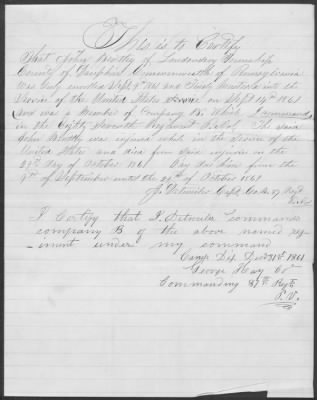 This is to Certify
That John Brestly of Londonderry Township
County of Dauphin Commonwealth of Pennsylvania
Was duly enrolled Sept 9th 1861 and Duly Mustered into the
Service of the United States on Sept 14th 1861
and was a Member of Company B. Which I command
in the Eighty Seventh Regiment P.V. The Said
John was injured while in the Service of the
United States and died from Said injuries on the
27th Day of October 1861 Pay due him from the
9th of September until the 27th of October 1861
J. Detweiler Capt, Co. B. 87 Regt
I Certify that J. Detweiler Commands
company B of the above named reg-
iment under my command
Camp Dix Decr 31st 1861
George Hay Col
Commanding 87th Regt
P. V.